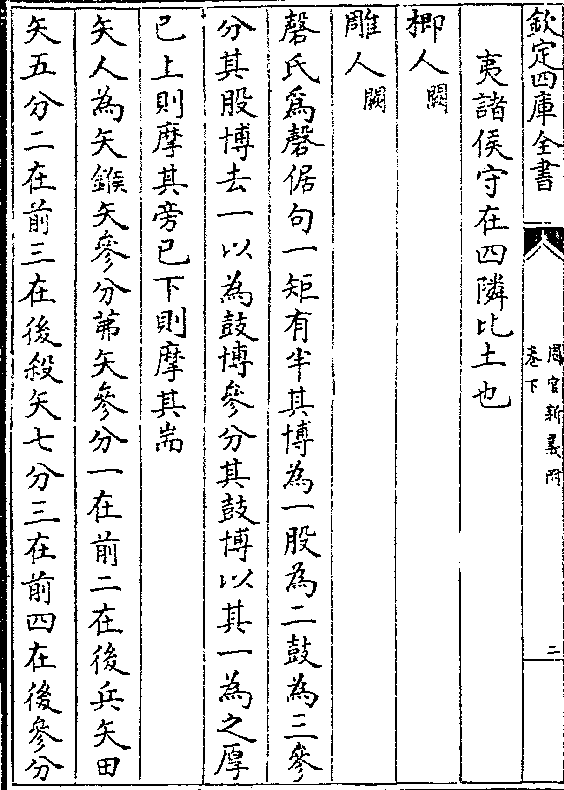 欽定四庫全書
周官新義附
卷下
二
夷諸侯守在四隣比土也
楖人闕
雕人闕
磬氏爲磬倨句一矩有半其博為一股為二鼓為三參
分其股博去一以為鼓博參分其鼓博以其一為之厚
已上則摩其旁已下則摩其耑
矢人為矢鍭矢參分茀矢參分一在前二在後兵矢田
矢五分二在前三在後殺矢七分三在前四在後參分